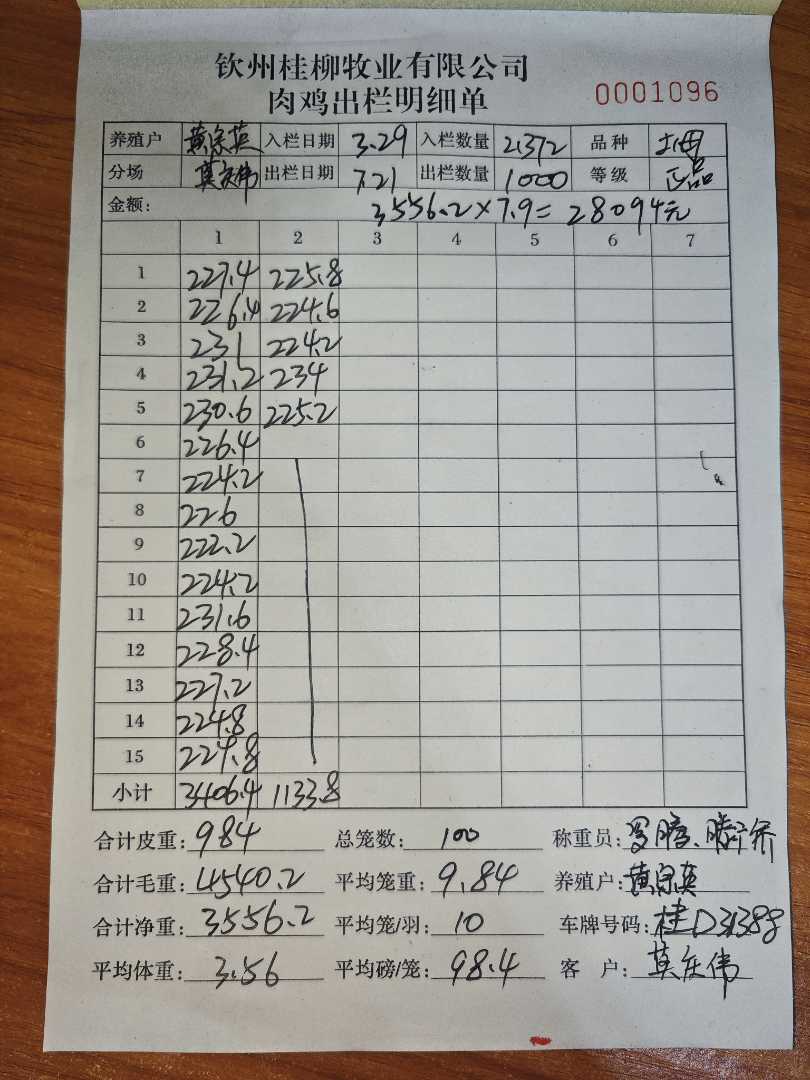 钦州桂柳牧业有限公司
肉鸡出栏明细单 0001096
养殖户 黄宗英 入栏日期 3.29 入栏数量 21372 品种 土母
分场 莫庆伟 出栏日期 7.21 出栏数量 1000 等级 正品
金额: 3556.2×7.9=28094元
1 2 3 4 5 6 7
1 227.4 225.8
2 226.4 224.6
3 231 224.2
4 231.2 234
5 230.6 225.2
6 226.4
7 224.2
8 226
9 222.2
10 224.2
11 231.6
12 228.4
13 227.2
14 224.8
15 224.8
小计 3406.4 1133.8
合计皮重: 984 总笼数: 100 称重员:
合计毛重: 4540.2 平均笼重: 9.84 养殖户: 黄宗英
合计净重: 3556.2 平均笼/羽: 10 车牌号码: 桂D31388
平均体重: 3.56 平均磅/笼: 98.4 客户: 莫庆伟